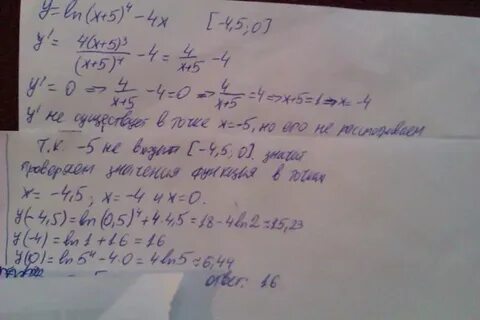 y=ln(x+5)⁴-4x [-4,5;0]
y'= 4(x+5)³/(x+5)⁴ -4= 4/x+5 -4
y'=0 ⇒ 4/x+5 -4=0 ⇒ 4/x+5 =4⇒x+5=1⇒x=-4
y' не существует в точке x=-5, но его не рассматриваем
т.к. -5 не входит [-4,5;0]. значит
проверяем значения функция в точках
x= -4,5; x=-4 и x=0.
y(-4,5)=ln(0,5)⁴+4·4,5=18-4ln2≈15,23
y(-4)=ln1+16=16
y(0)=ln5⁴-4·0=4ln5≈6,44
ответ: 16